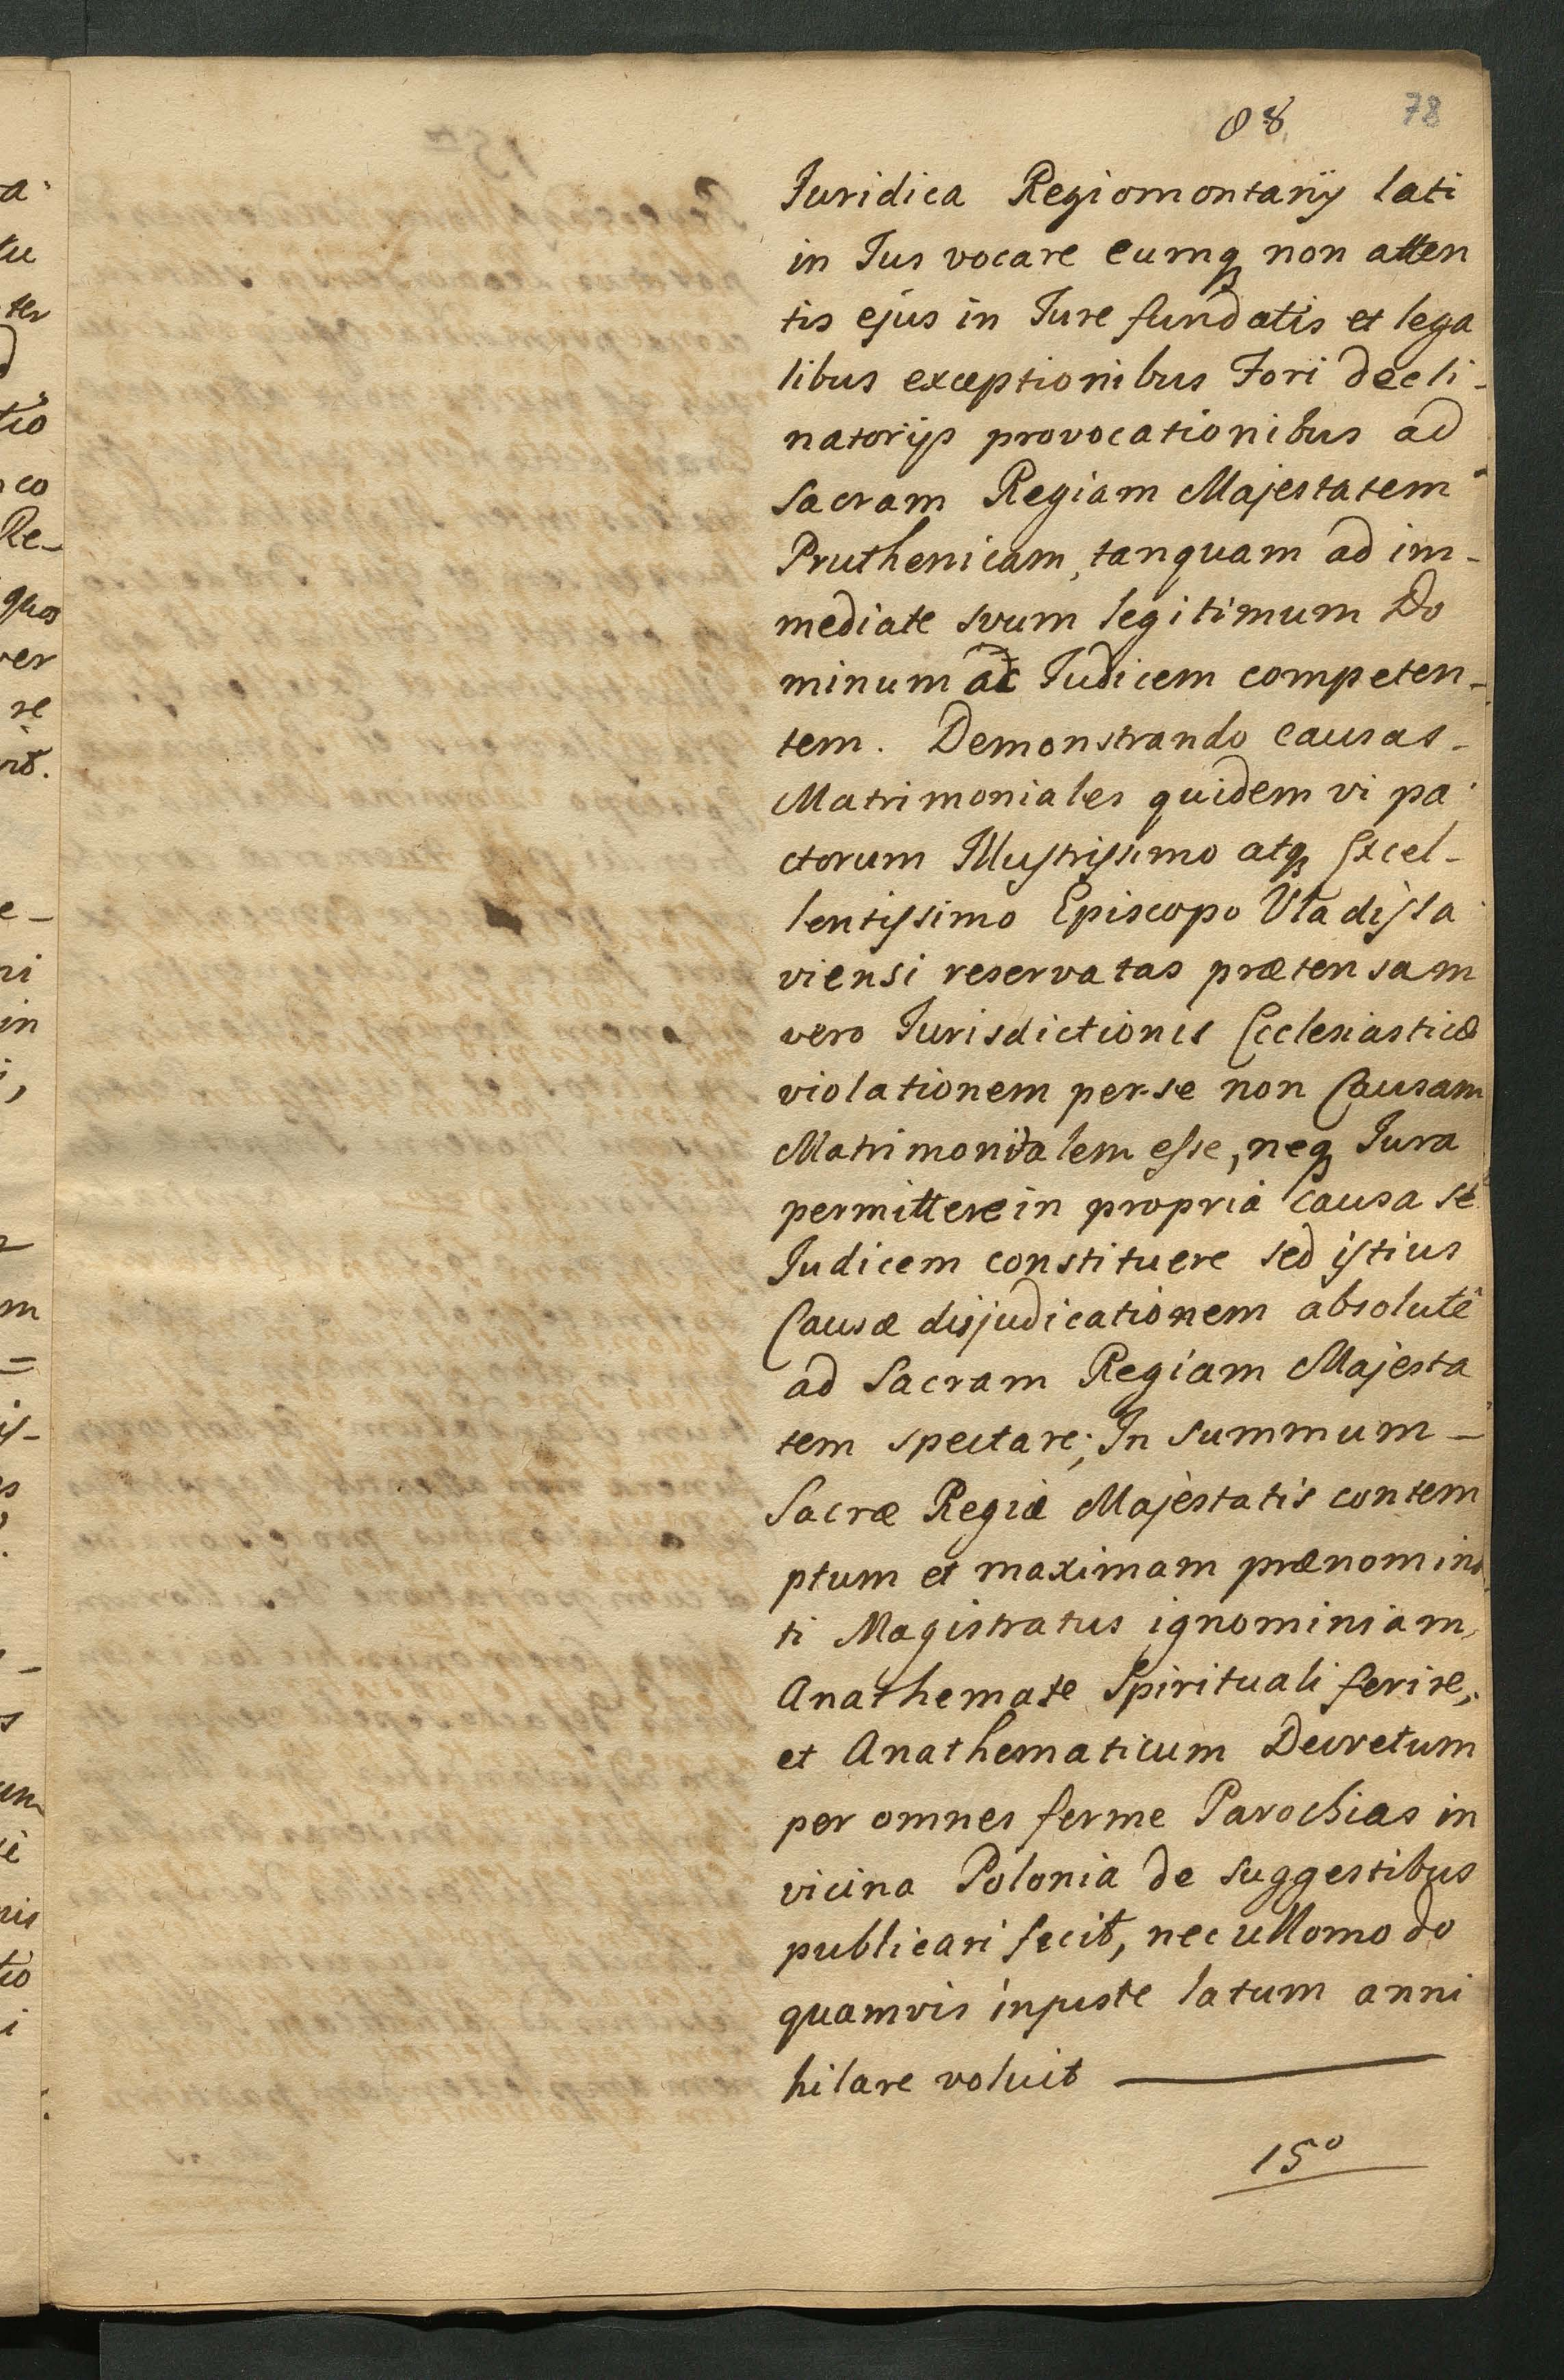 88 78
Juridica Regiomontanij lati
in Jus vocare eumq non atten
tis ejus in Jure fundatis et lega
libus exceptionibus Fori decli-
natorijs provocationibus ad
Sacram Regiam Majestatem
Pruthenicam, tanquam ad im-
mediate suum legitimum Do
minum ac Judicem competen-
tem. Demonstrando causas-
Matrimoniales quidem vi pa
ctorum Illustrissimo atq Excel-
lentissimo Episcopo Vladisla
viensi reservatas prætensam
vero Jurisdictionis Ecclesiasticæ
violationem per-se non Causam
Matrimonialem esse, neq Jura
permittere in propria Causa se
Judicem constituere sed istius
Causæ disjudicationem absolutê
ad Sacram Regiam Majesta
tem spectare; In summum -
Sacræ Regiæ Majestatis contem
ptum et maximam prænomina
ti Magistratus ignominiam,
Anathemate Spirituali ferire,
et Anathematicum Decretum
per omnes ferme Parochias in
vicina Polonia de suggestibus
publicari fecit, nec ullomodo
quamvis injuste latum anni
hilare voluit —
15º